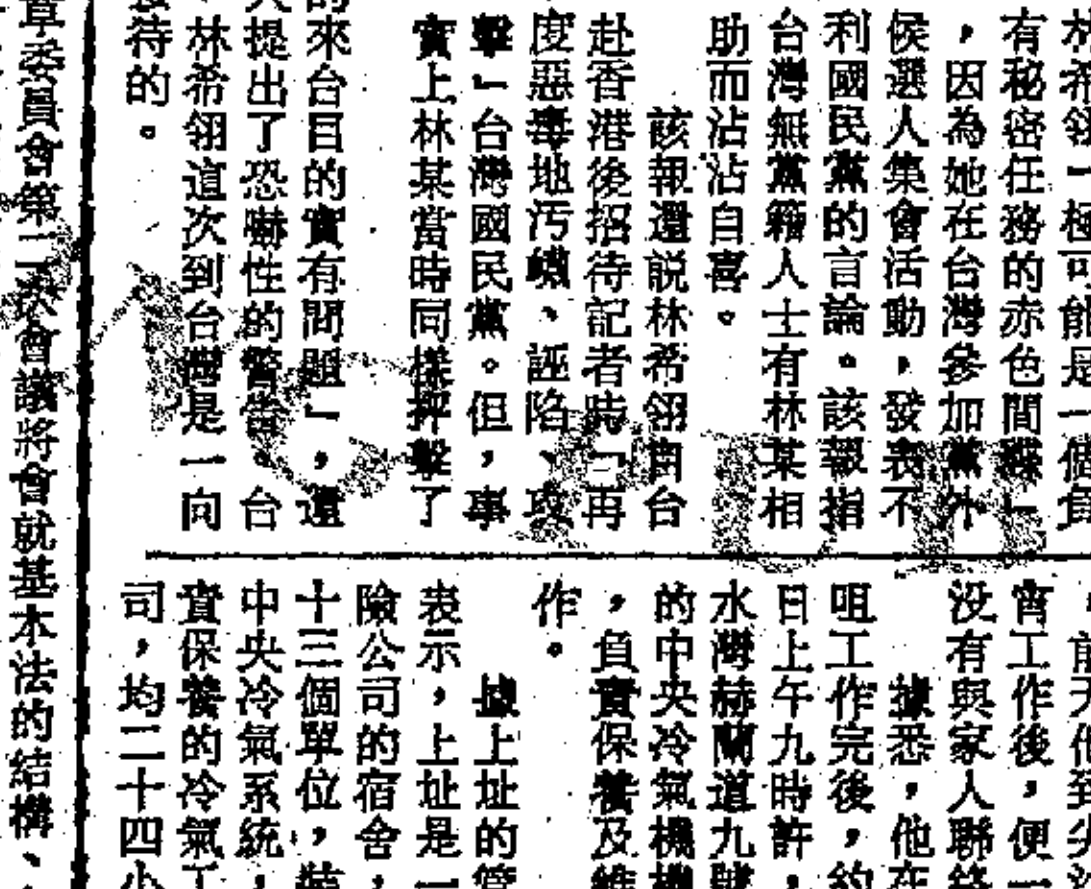 林希翎「極可能是一個負
有秘密任務的赤色間諜」
，因為她在台灣參加黨外
侯選人集會活動，發表不
利國民黨的言論。該報指
台灣無黨籍人士有林某相
助而沾沾自喜。
該報還説林希翎由台
赴香港後招待記者時「再
度惡毒地污衊、誣陷、攻
擊」台灣國民黨。但，事
實上林某當時同樣抨擊了
的來台目的實有問題」，還
人提出了恐嚇性的警告。台
林希翎這次到台灣是一向
接待的。
前天他到尖
宵工作後，便一
没有與家人聯絡
據悉，他在
咀工作完後，約
日上午九時許，
水灣赫蘭道九號
的中央冷氣機機
，負責保養及維
作。
據上址的管
表示，上址是一
險公司的宿舍，
十三個單位，裝
中央冷氣系統，
責保養的冷氣工
司，均二十四小
章委員會第二次會議將會就基本法的結構、